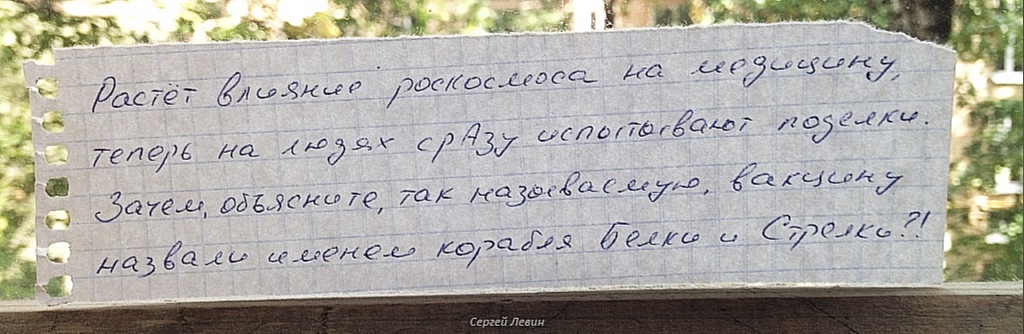 Растёт влияние роскосмоса на медицину,
теперь на людях срАзу испытывают поделки.
Зачем, объясните, так называемую, вакцину
назвали именем корабля Белки и Стрелки?!
Сергей Левин